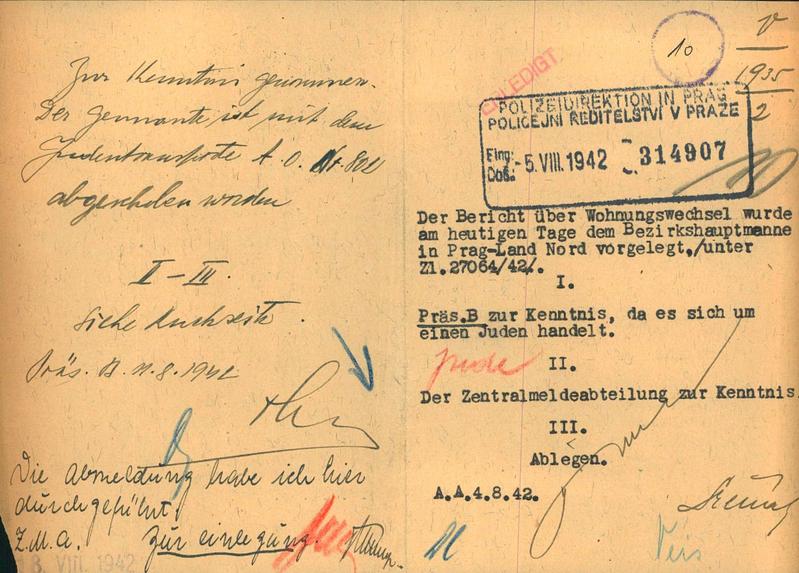 Zur Kenntnis genommen.
Der Genannte ist mit dem
Judentransporte A.O. Nr. 802
abgeschoben worden
I-III.
Siehe Rückseite.
Präs. B. 11.8.1942
Die Abmeldung habe ich hier
durchgeführt.
Z.M.A. Zur einlegung.
13. VIII. 1942
ERLEDIGT
10
V
1935
2
POLIZEIDIREKTION IN PRAG
POLICEJNÍ ŘEDITELSTVÍ V PRAZE
Eing.: 5.VIII.1942 314907
Doš.:
Der Bericht über Wohnungswechsel wurde
am heutigen Tage dem Bezirkshauptmanne
in Prag-Land Nord vorgelegt./unter
Zl.27064/42/.
I.
Präs.B zur Kenntnis, da es sich um
einen Juden handelt.
Jude
II.
Der Zentralmeldeabteilung zur Kenntnis
III.
Ablegen.
A.A.4.8.42.